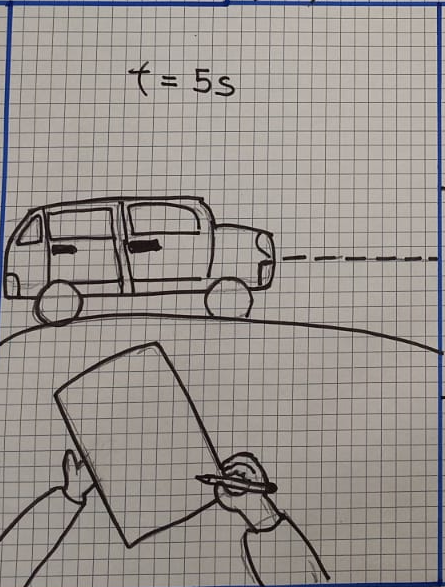 t = 5s